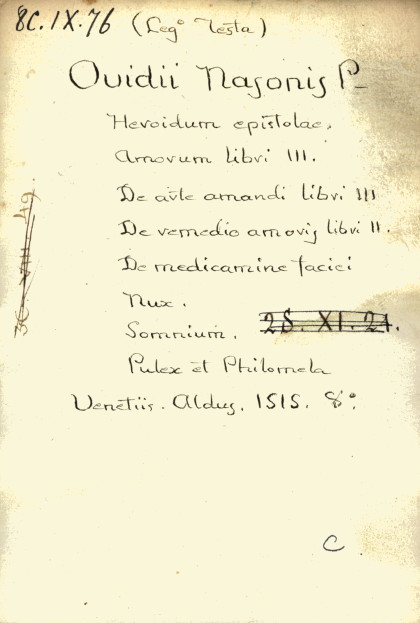 8C.IX.76 (Legº Testa)
Ovidii Nasonis P.
Heroidum epistolae.
Amorum libri III.
De arte amandi libri III
De remedio amoris libri II.
De medicamine faciei
Nux.
Somnium.
28. XI. 24.
Pulex et Philomela
Venetiis. Aldus. 1515. 8º.
C.